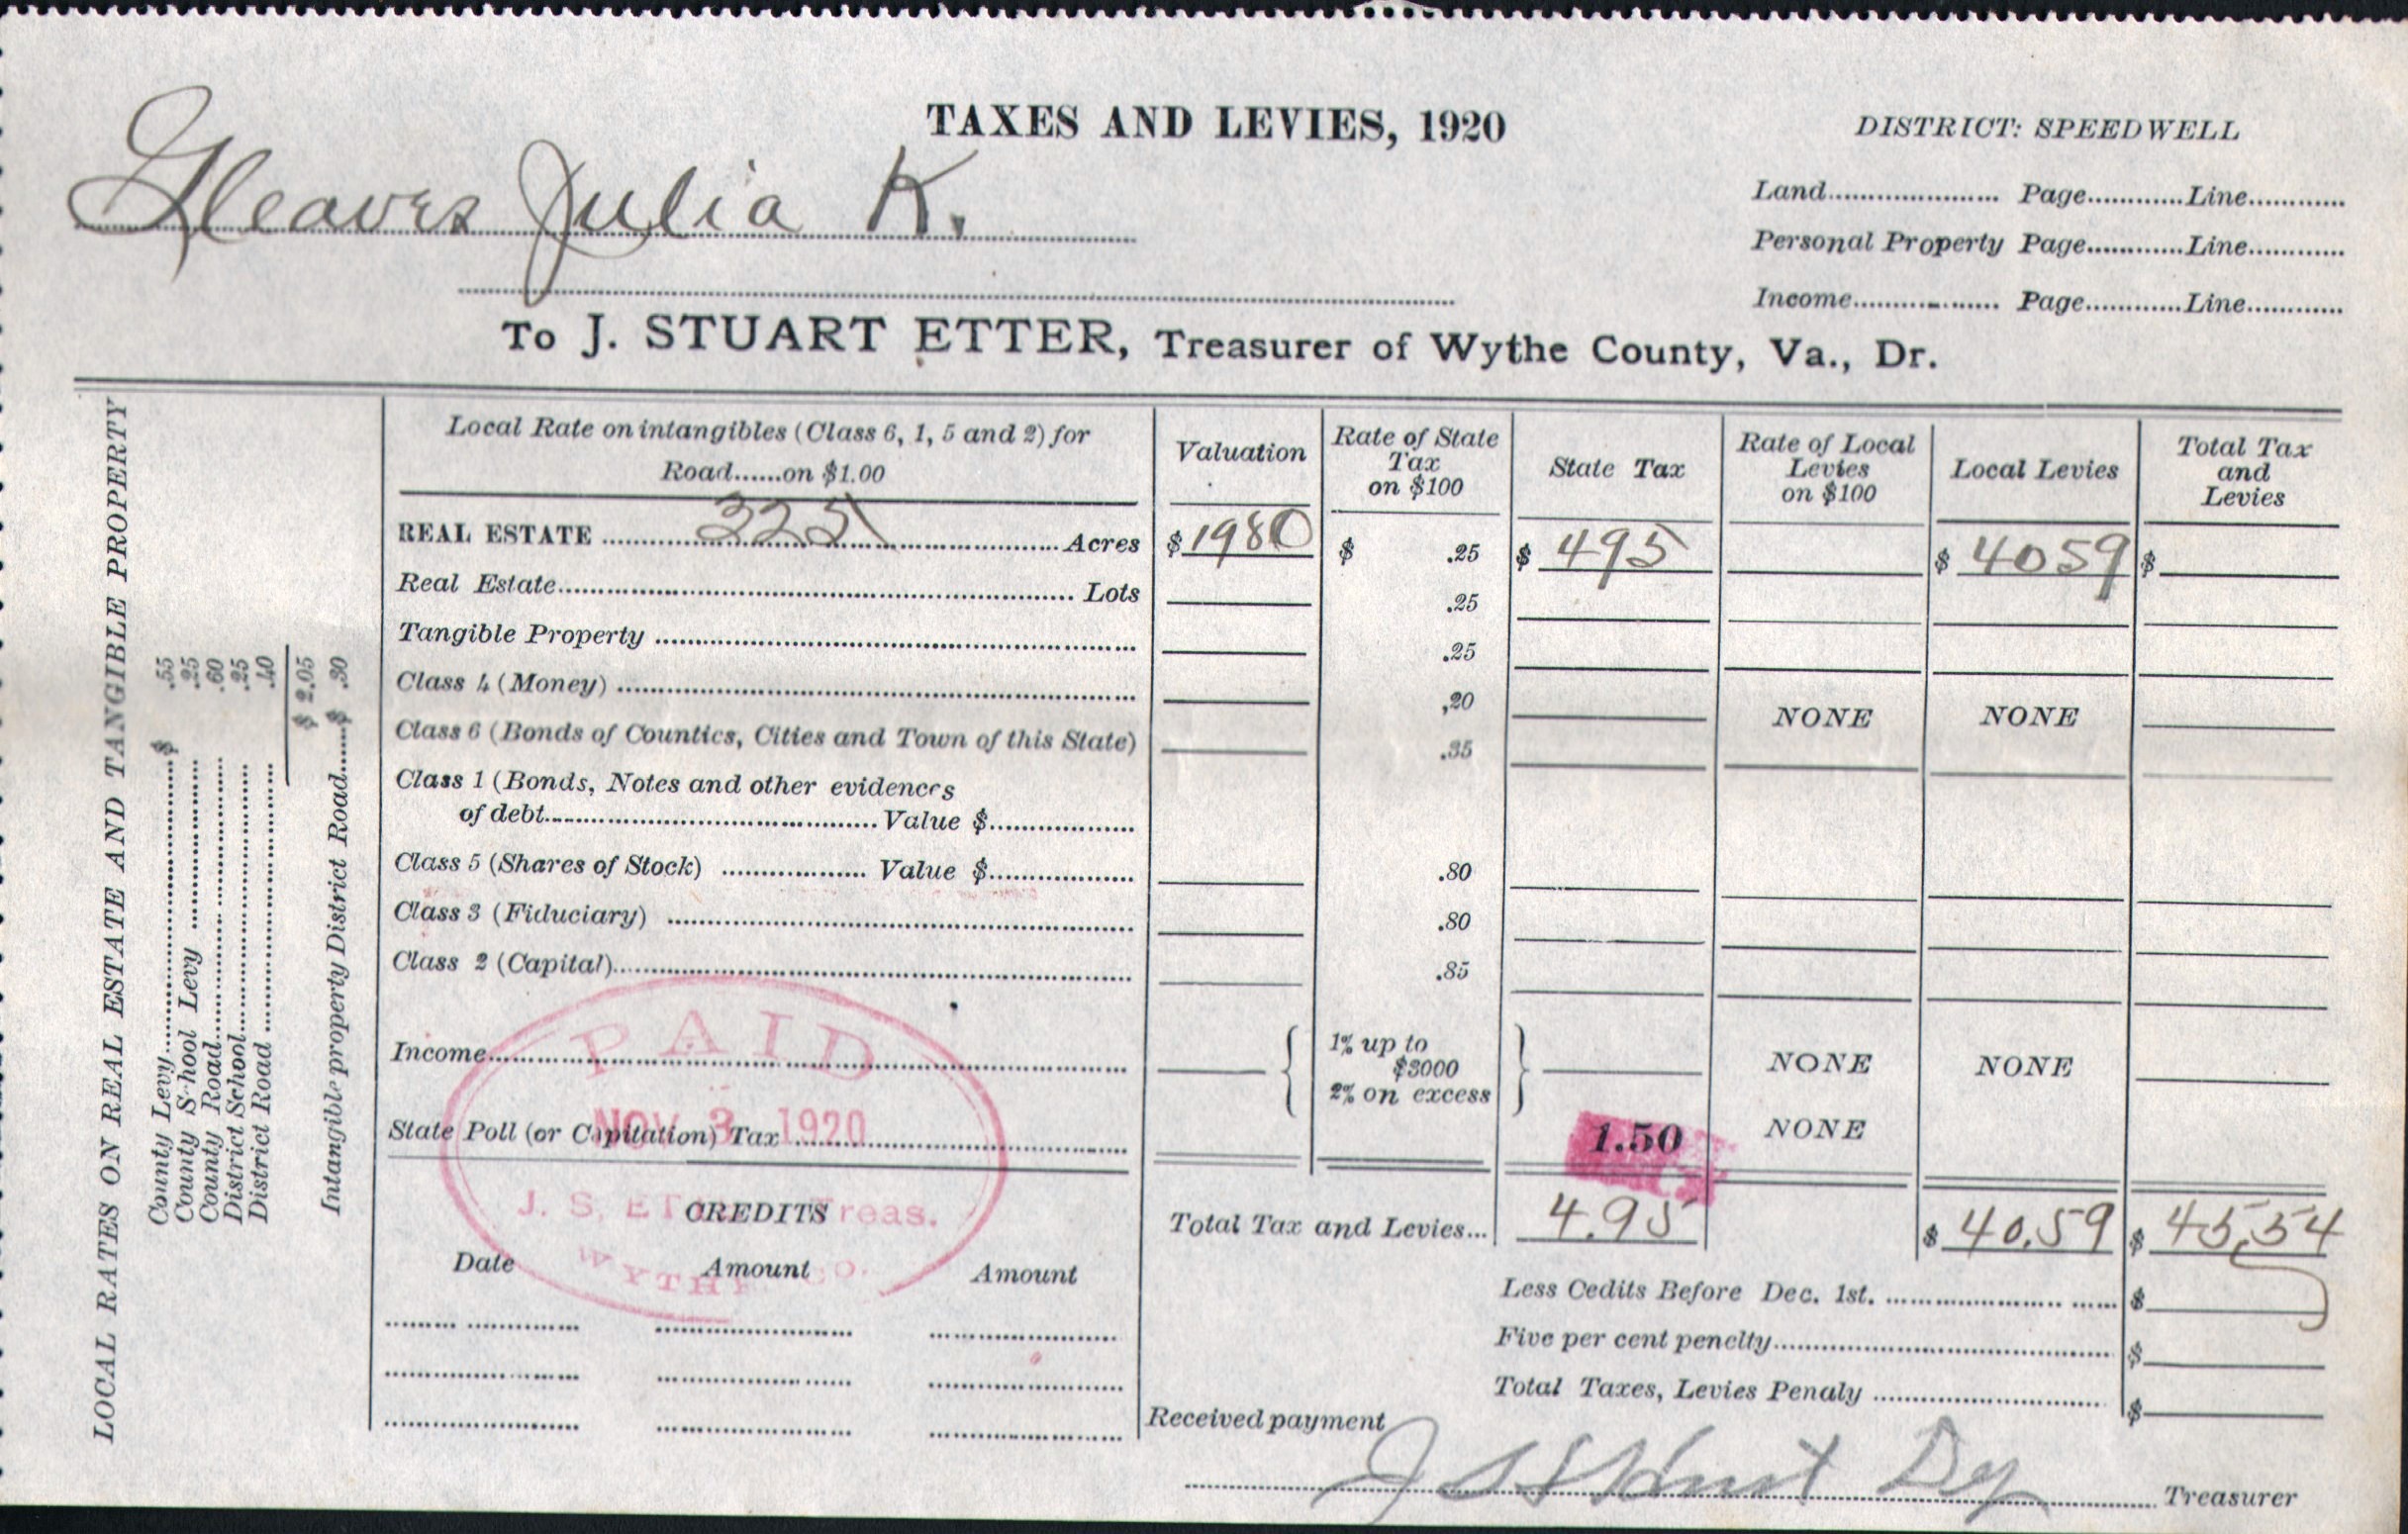 TAXES AND LEVIES, 1920
DISTRICT: SPEEDWELL
Gleaves Julia K.
Land.................... Page............Line............
Personal Property Page............Line............
Income.................. Page............Line............
To J. STUART ETTER, Treasurer of Wythe County, Va., Dr.
LOCAL RATES ON REAL ESTATE AND TANGIBLE PROPERTY
County Levy..........$ .55
County S-hool Levy .......... .25
County Road.......... .60
District School.......... .25
District Road .......... .40
$ 2.05
Intangible property District Road.......$ .30
Local Rate on intangibles (Class 6, 1, 5 and 2) for
Road.......on $1.00
Valuation
Rate of State
Tax
on $100
State Tax
Rate of Local
Levies
on $100
Local Levies
Total Tax
and
Levies
REAL ESTATE .......... 325 .......... Acres $ 1980 $ .25 $ 495 $ 4059 $
Real Estate.......... Lots .25
Tangible Property .......... .25
Class 4 (Money) .......... ,20 NONE NONE
Class 6 (Bonds of Countics, Cities and Town of this State) .35
Class 1 (Bonds, Notes and other evidences
of debt.......... Value $..........
Class 5 (Shares of Stock) .......... Value $.......... .80
Class 3 (Fiduciary) .......... .80
Class 2 (Capital).......... .85
Income.......... 1% up to
$3000
2% on excess
NONE NONE
State Poll (or Capitation) Tax .......... 1.50 NONE
PAID
NOV 3 1920
J. S. ET Treas.
WYTHE CO.
CREDITS
Date Amount Amount
Total Tax and Levies... 4.95 $ 40.59 $ 45.54
Less Cedits Before Dec. 1st. .......... $
Five per cent penelty.......... $
Total Taxes, Levies Penaly .......... $
Received payment
Treasurer